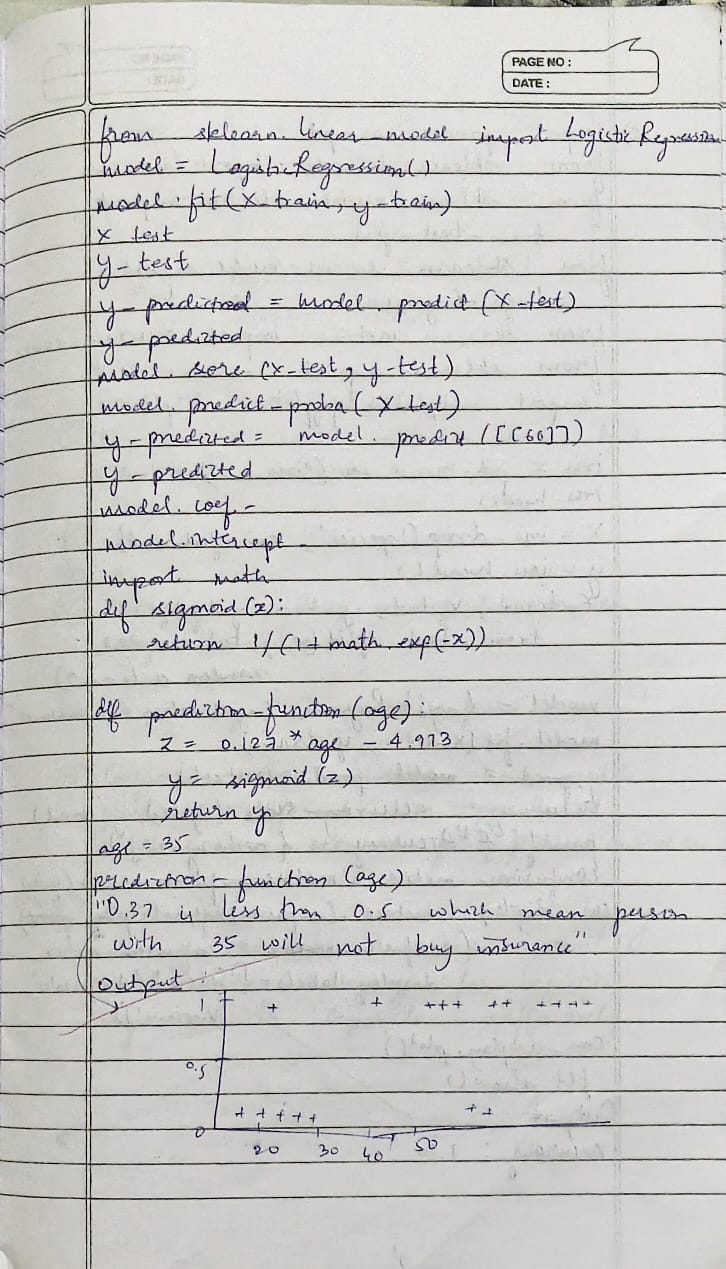 PAGE NO :
DATE :
from sklearn. linear_model import Logistic Regression
model = LogisticRegression()
model . fit (X_train, y-train)
X test
y-test
y-predicted = model . predict (X-test)
y-predicted
model. score (X-test, y-test)
model. predict-proba ( X_test)
y-predicted = model. predict ([[60]])
y-predicted
model. coef-
model.intercept-
import math
def sigmoid (z):
return 1/(1+ math. exp(-x))
def prediction-function (age):
z = 0.127 * age - 4.973
y= sigmoid (z)
return y
age = 35
prediction-function (age)
"0.37 is less than 0.5 which mean person
with 35 will not buy insurance"
Output :
1 + + +++ ++ ++++
0.5
+ + + + + + +
0
20 30 40 50